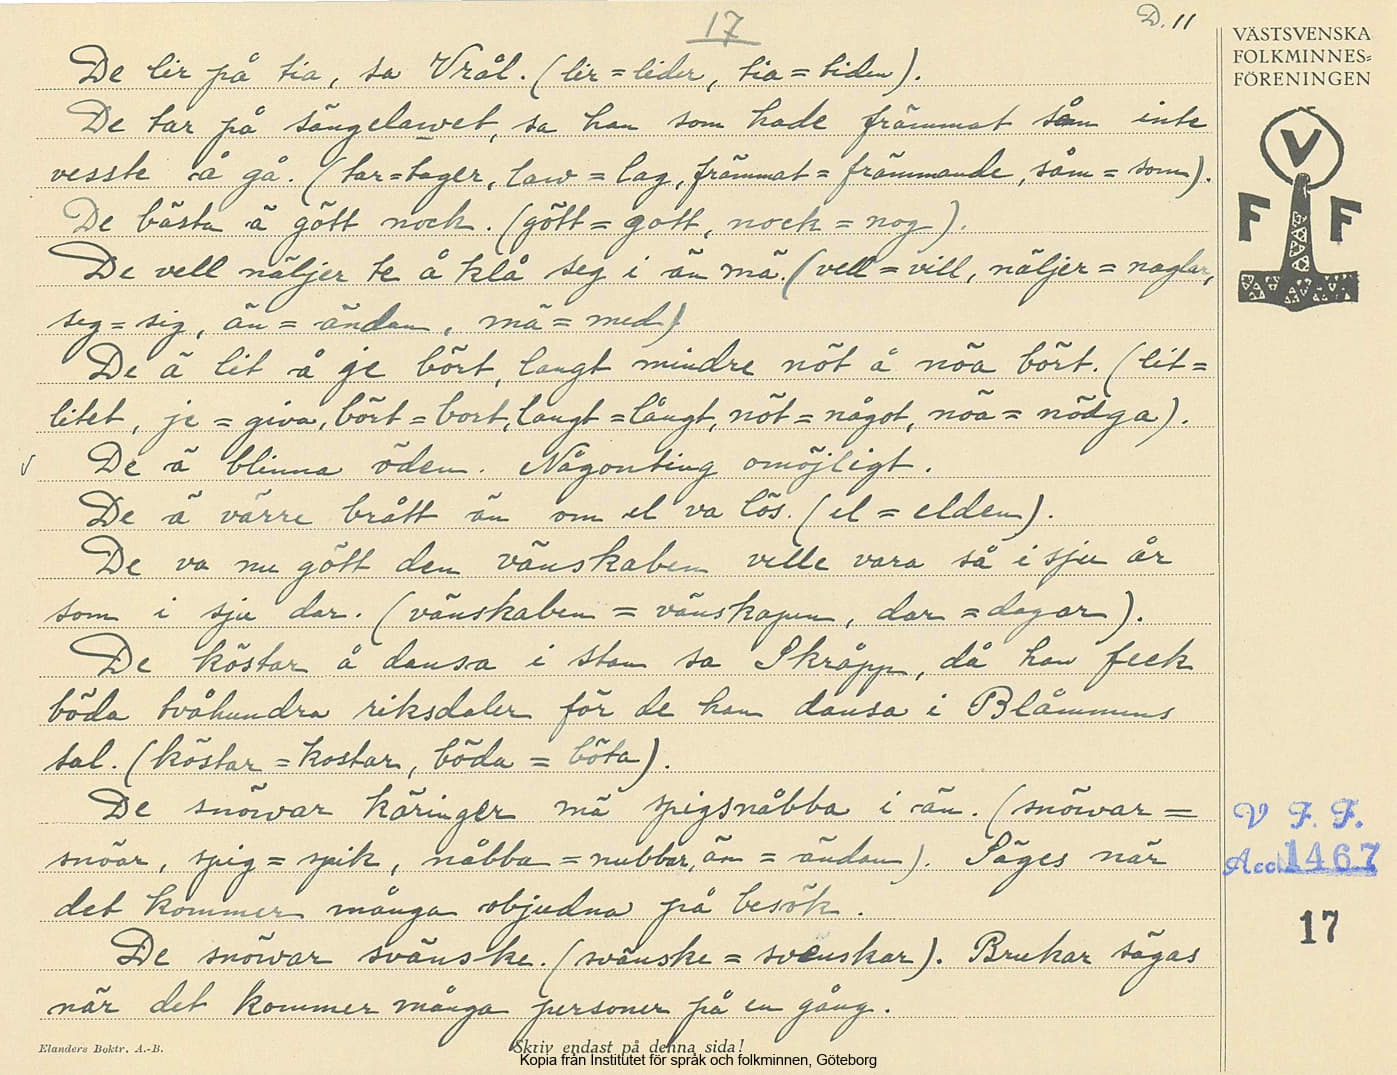 17
D. 11
VÄSTSVENSKA
FOLKMINNES=
FÖRENINGEN
V
F F
De lir på tia, sa Vrål. (lir = lider, tia = tiden).
De tar på sängelawet, sa han som hade främmat såm inte
vesste å gå. (tar = tager, law = lag, främmat = främmande, såm = som).
De bästa ä gött nock. (gött = gott, nock = nog).
De vell näljer te å klå seg i än mä. (vell = vill, näljer = naglar,
seg = sig, än = ändan, mä = med)
De ä lit å je bört, langt mindre nöt å nöa bört. (lit =
litet, je = giva, bört = bort, langt = långt, nöt = något, nöa = nödga).
De ä blinna öden. Någonting omöjligt.
De ä värre brått än om el va lös. (el = elden).
De va nu gött den vänskaben velle vara så i sju år
som i sju dar. (vänskaben = vänskapen, dar = dagar).
De köstar å dansa i stan sa Skräpp, då han feck
böda tvåhundra riksdaler för de han dansa i Blåmmens
sal. (köstar = kostar, böda = böta).
De snöwar käringer mä spigsnåbba i än. (snöwar =
snöar, spig = spik, nåbba = nubbar, än = ändan). Säges när
det kommer många objudna på besök.
De snöwar svänske. (svänske = svenskar). Brukar sägas
när det kommer många personer på en gång.
V. F. F.
Acc. 1467
17
Elanders Boktr. A.-B.
Skriv endast på denna sida!
Kopia från Institutet för språk och folkminnen, Göteborg